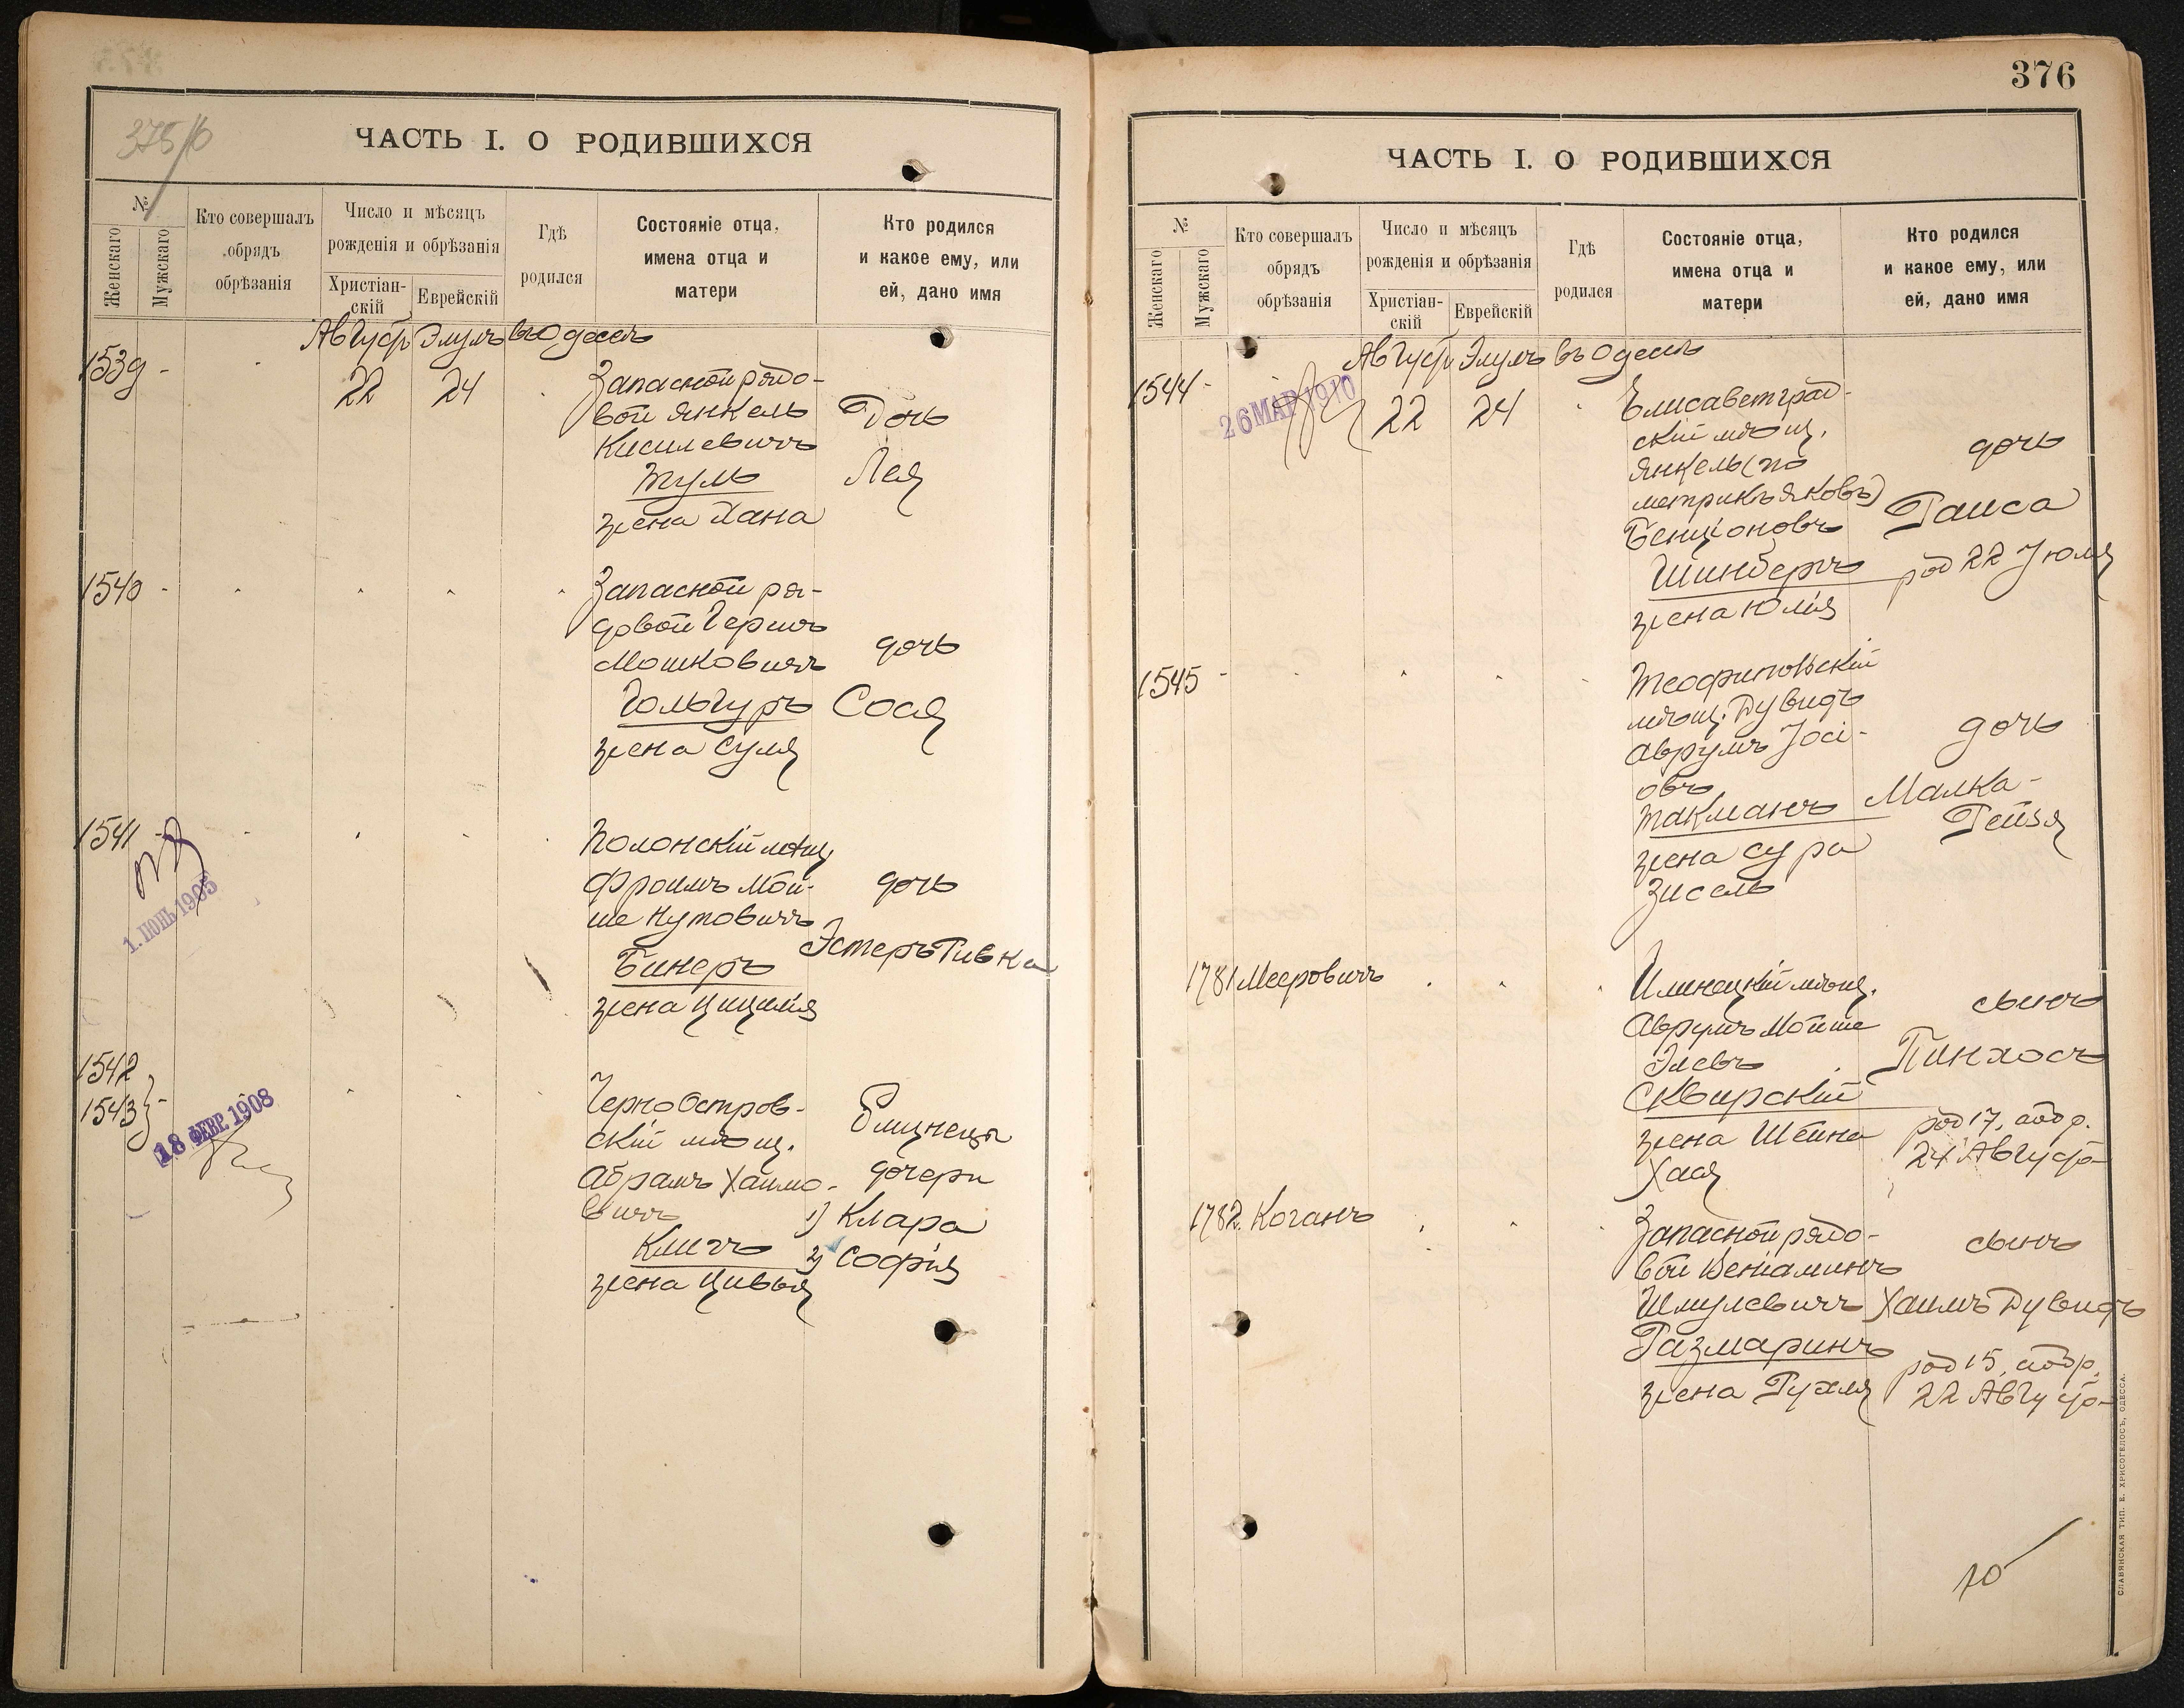 376
375/б
ЧАСТЬ I. О РОДИВШИХСЯ
№
Женскаго
Мужскаго
Кто совершалъ
обрядъ
обрѣзанія
Число и мѣсяцъ
рожденія и обрѣзанія
Христіан-
скій
Еврейскій
Гдѣ
родился
Состояніе отца,
имена отца и
матери
Кто родился
и какое ему, или
ей, дано имя
Август Элулъ въ Одессѣ
1539 -
22
24
Запасной рядо-
вой Янкель
Кисилевичъ
Туль
жена Хана
Дочь
Лея
1540 -
Запасной ря-
довой Гершъ
Мошковичъ
Гольгуръ
жена Суля
дочь
Сося
1541 -
1. ІЮНЬ 1905
Полонскій мѣщ
Фроимъ Мой-
ше Нутовичъ
Бинеръ
жена Цицилія
дочь
Эстеръ Ривка
1542
1543 } -
18 ФЕВР. 1908
Черноостров-
скій мѣщ.
Абрамъ Хаимо-
вичъ
Кличъ
жена Цивья
Близнецы
дочери
1) Клара
2) Софія
ЧАСТЬ I. О РОДИВШИХСЯ
№
Женскаго
Мужскаго
Кто совершалъ
обрядъ
обрѣзанія
Число и мѣсяцъ
рожденія и обрѣзанія
Христіан-
скій
Еврейскій
Гдѣ
родился
Состояніе отца,
имена отца и
матери
Кто родился
и какое ему, или
ей, дано имя
Август Элулъ въ Одессѣ
1544 -
26 МАР 1910
22
24
Елисаветград-
скій мѣщ.
Янкель (по
метрикѣ Яковъ)
Бенціоновъ
Шинберъ
жена Юлія
дочь
Раиса
род 22 Іюля
1545 -
Теофипольскій
мѣщ. Дувидъ
Аврумъ Іосі-
овъ
Такманъ
жена Сура
Зисель
дочь
Малка-
Рейзя
1781 Мееровичъ
Илинецкій мѣщ.
Аврумъ Мойше
Элевъ
Сквирскій
жена Шейна
Хая
сынъ
Пинхосъ
род 17, обр.
24 Август
1782 Коганъ
Запасной рядо-
вой Веніаминъ
Шмулевичъ
Размаринъ
жена Рухля
сынъ
Хаимъ Дувидъ
род 15, обр.
22 Август
СЛАВЯНСКАЯ ТИП. Е. ХРИСОГЕЛОСЪ, ОДЕССА.